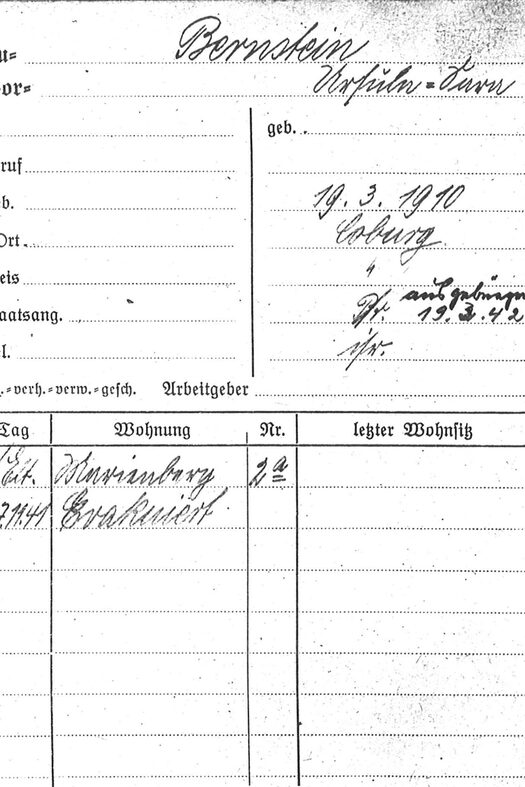 u=
Bernstein
or=
Ursula=Sara
geb.
ruf
b.
19. 3. 1910
Ort.
Coburg
eis
"
aatsang.
ausgebürgert
19. 3. 42
l.
isr.
.=verh.=verw.=gesch. Arbeitgeber
Tag Wohnung Nr. letzter Wohnsitz
Marienberg 2a
.11.41 Evakuiert